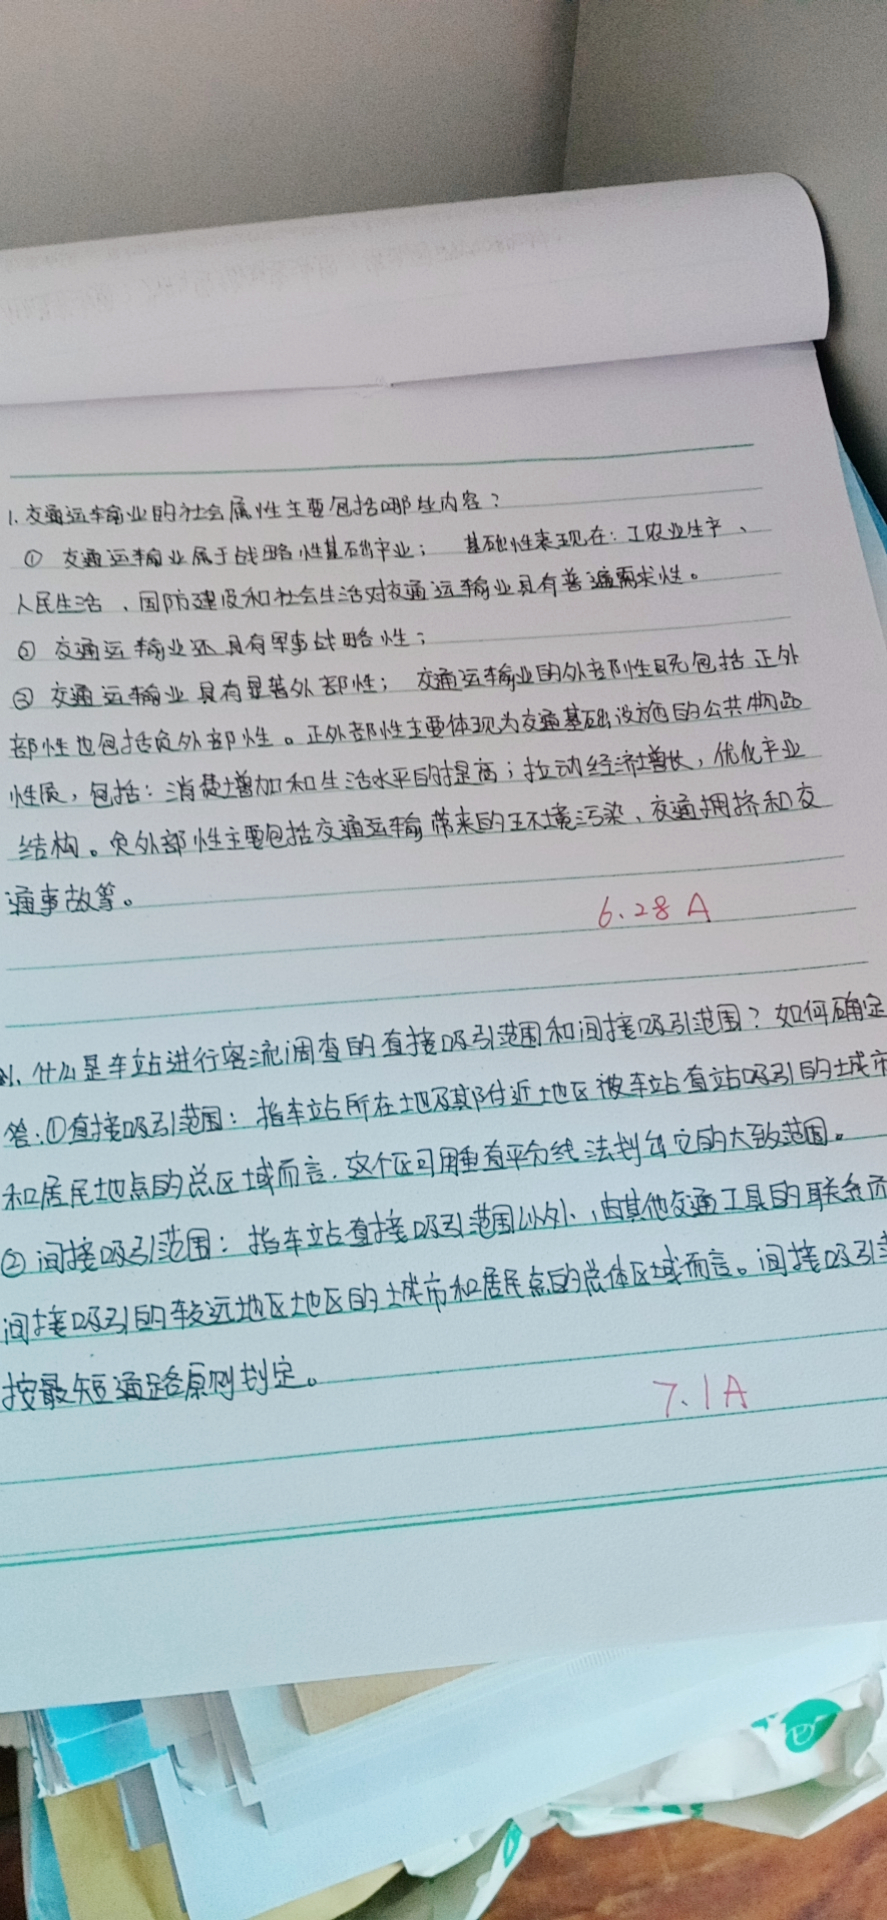 1.交通运输业的社会属性主要包括哪些内容?
① 交通运输业属于战略性基础产业; 基础性表现在:工农业生产、
人民生活、国防建设和社会生活对交通运输业具有普遍需求性。
② 交通运输业还具有军事战略性;
③ 交通运输业具有显著外部性; 交通运输业的外部性既包括正外
部性也包括负外部性。正外部性主要体现为交通基础设施的公共物品
性质,包括:消费增加和生活水平的提高;拉动经济增长,优化产业
结构。负外部性主要包括交通运输带来的环境污染、交通拥挤和交
通事故等。
6.28 A
1.什么是车站进行客流调查的直接吸引范围和间接吸引范围?如何确定
答:①直接吸引范围:指车站所在地及其附近地区被车站直站吸引的城市
和居民地点的总区域而言.这个区可用垂直平分线法划出它的大致范围。
② 间接吸引范围:指车站直接吸引范围以外,由其他交通工具的联系而
间接吸引的较远地区地区的城市和居民点的总体区域而言。间接吸引
按最短通路原则划定。
7.1A